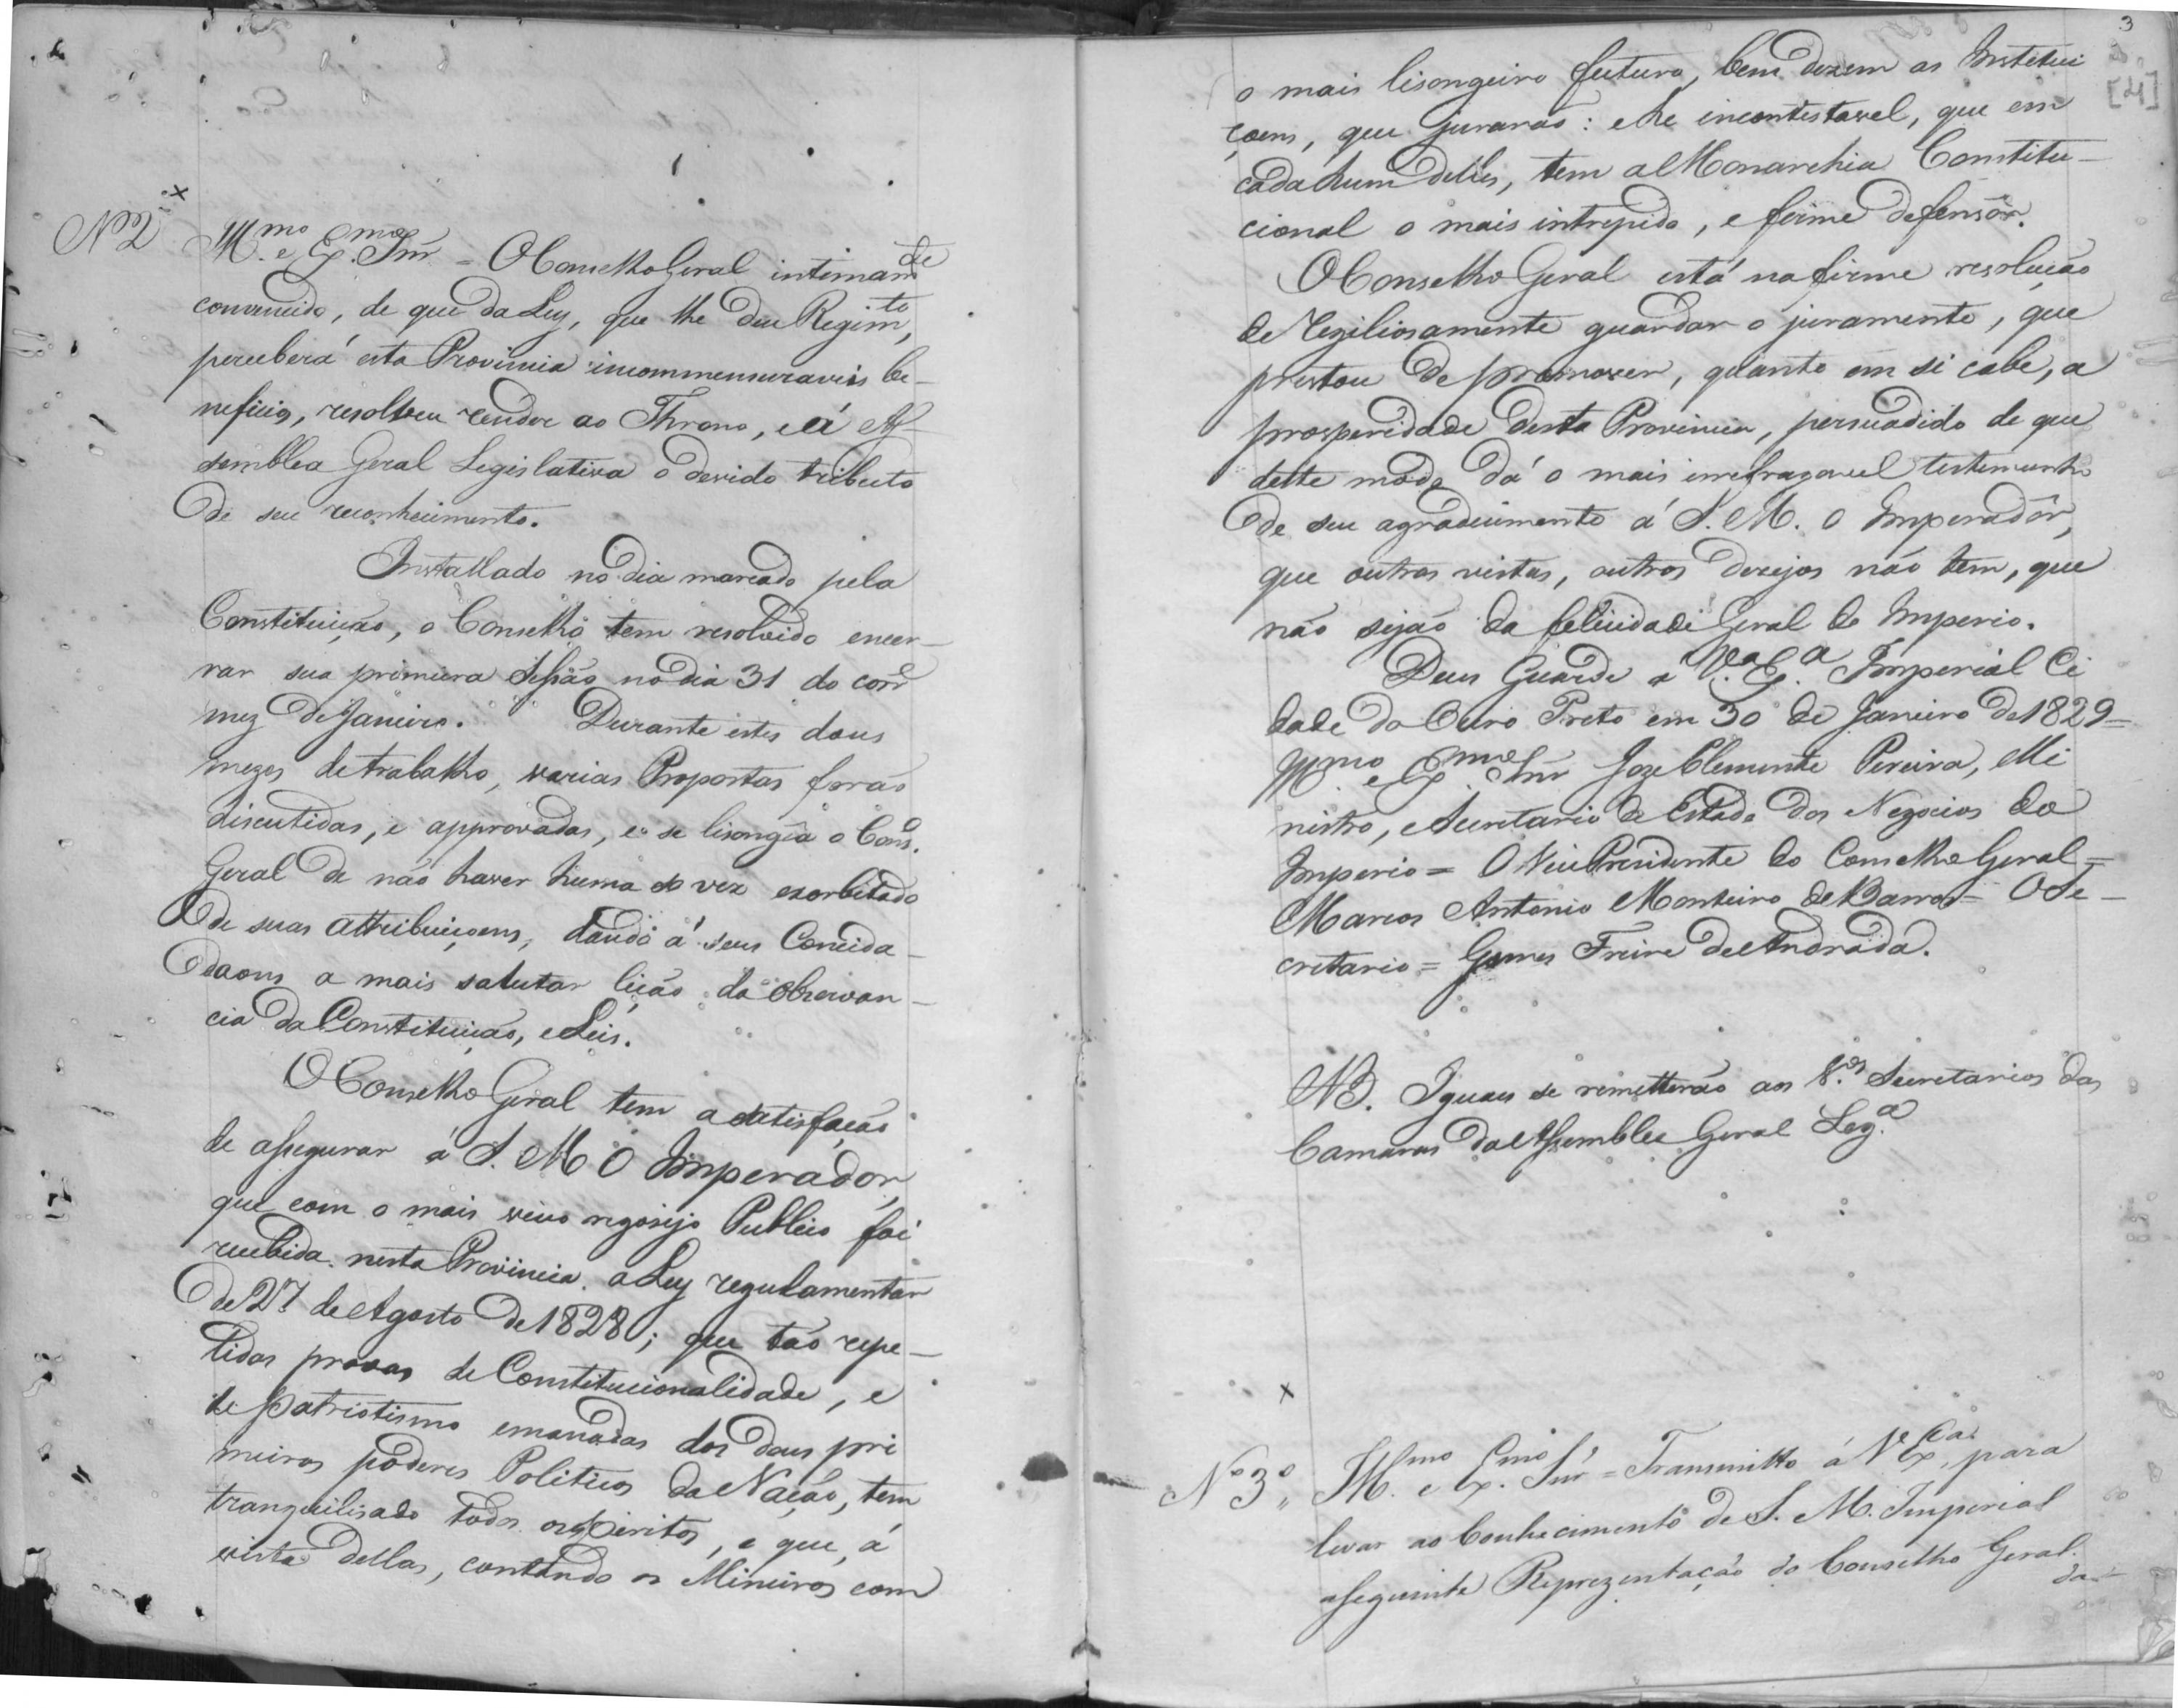 Nº 2
Illmo. e Exmo. Snr = O Conselho Geral intimamde
convencido, de que da Ley, que lhe deu Regimto,
perceberá esta Provincia incommensuraveis be-
neficios, resolveu render ao Throno, e á As-
semblea Geral Legislativa o devido tributo
de seu reconhecimento.
Installado no dia marcado pela
Constituição, o Conselho tem resolvido encer-
rar sua primeira Sessão no dia 31 do corre
mez de Janeiro. Durante estes dous
mezes de trabalho, varias Propostas forão
discutidas, e approvadas, e se lisongêa o Conso.
Geral de não haver huma só vez exorbitado
de suas attribuiçoens, dando á seus Concida-
daons a mais salutar lição da observan-
cia da Constituição, e Leis.
O Conselho Geral tem a satisfação
de assegurar á S. M. O Imperador,
que com o mais vivo regosijo Publico foi
recebida nesta Provincia a Ley regulamentar
de 27 de Agosto de 1828; que tão repe-
tidas provas de Constitucionalidade, e
de patriotismo emanadas dos dous pri
meiros poderes Politicos da Nação, tem
tranquilisado todos os espiritos, e que, á
vista dellas, contando os Mineiros com
3
[4]
o mais lisongeiro futuro, bem dizem as Institui
çoens, que jurarão: e he incontestavel, que em
cada hum delles, tem a Monarchia Constitu-
cional o mais intrepido, e firme defensôr.
O Conselho Geral está na firme resolução
de religiosamente guardar o juramento, que
prestou de promover, quanto em si cabe, a
prosperidade desta Provincia, persuadido de que
deste modo dá o mais irrefragavel testemunho
de seu agradecimento á S. M. O Imperadôr,
que outras vistas, outros dezejos não tem, que
não sejão da felicidade Geral do Imperio.
Deus Guarde a V.a Ex.a Imperial Ci
dade do Ouro Preto em 30 de Janeiro de 1829=
Illmo. e Exmo. Snr Joze Clemente Pereira, Mi
nistro, e Secretario de Estado dos Negocios do
Imperio = O Vice Presidente do Conselho Geral =
Marcos Antonio Monteiro de Barros = O Se-
cretario = Gomes Freire de Andrada.
NB. Iguaes se remetterão aos 1.os Secretarios das
Camaras da Assemblea Geral Leg.a
Nº 3º
Illmo. e Exmo. Snr = Transmitto á V. Exca. para
levar ao Conhecimento de S. M. Imperial
a seguinte Reprezentação do Conselho Geral
da